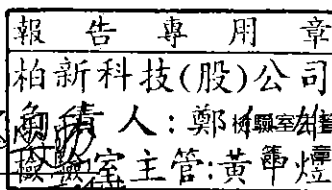 報告專用章
柏新科技(股)公司
負責人:鄭
檢驗室主管:黃